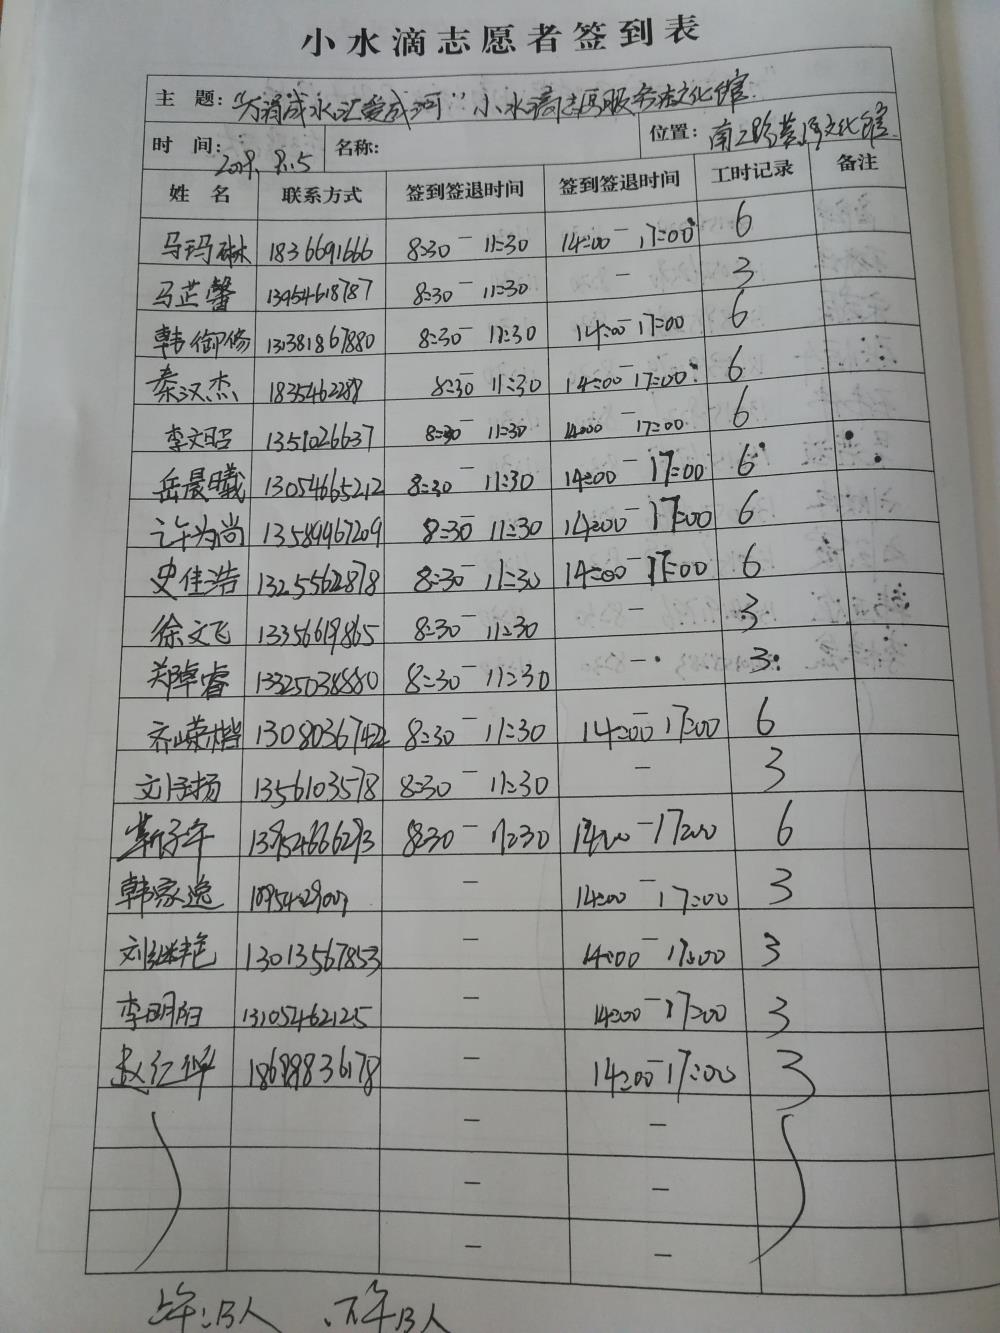 小水滴志愿者签到表
主 题: "大 成水汇爱成河" 小水滴志愿服务在文化馆
时 间: 2019.8.5 名称: 位置: 南二路 文化馆
姓 名 联系方式 签到签退时间 签到签退时间 工时记录 备注
马玛琳 18366691666 8:30 — 11:30 14:00 — 17:00 6
马芷馨 13954618787 8:30 — 11:30 — 3
韩御修 13181867880 8:30 — 11:30 14:00 — 17:00 6
秦汉杰 1835462288 8:30 — 11:30 14:00 — 17:00 6
李文昭 1351026637 8:30 — 11:30 14:00 — 17:00 6
岳晨曦 13054665212 8:30 — 11:30 14:00 — 17:00 6
许为尚 13589967209 8:30 — 11:30 14:00 — 17:00 6
史佳浩 13255562878 8:30 — 11:30 14:00 — 17:00 6
徐文飞 13356619865 8:30 — 11:30 — 3
郑卓睿 13325038880 8:30 — 11:30 — 3
齐嵘楷 13080367422 8:30 — 11:30 14:00 — 17:00 6
刘子扬 13561035178 8:30 — 11:30 — 3
子午 13954666293 8:30 — 11:30 14:00 — 17:00 6
韩家逸 — 14:00 — 17:00 3
刘继艳 13013567853 — 14:00 — 17:00 3
李明阳 13105462125 — 14:00 — 17:00 3
赵红 18689836178 — 14:00 — 17:00 3
— —
— —
— —
上午:13人 、下午13人